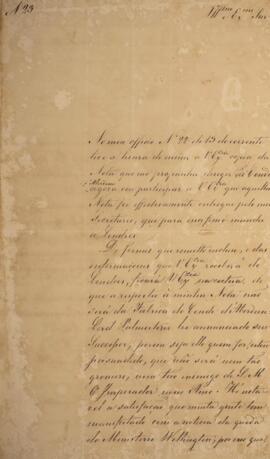 N 23
Illmo Exmo Snr
No meu officio Nº 22 de 13 do corrente
tive a honra de enviar a V. Exa copia da
Nota que me propunha dirigir ao Conde
agora em participar a V. Exa que aquella
Nota foi effectivamente entregue pelo meu
Secretario, que para esse fim mandei
a Londres
De Jornaes que remetto incluso, e das
informaçoens que V. Exa receberá de
Londres, ficará V. Exa na certeza de
que a resposta á minha Nota não
será da fabrica do Conde d'Aberdeen
Lord Palmerston foi annunciado seu
Successor, porem seja elle quem for, estou
persuadido, que não será nem tão
grosseiro, nem tão inimigo de S. M.
O Imperador como Amo. He nota
vel a satisfação que muita gente tem
manifestado com a noticia da queda
do Ministerio Wellington; por em quan